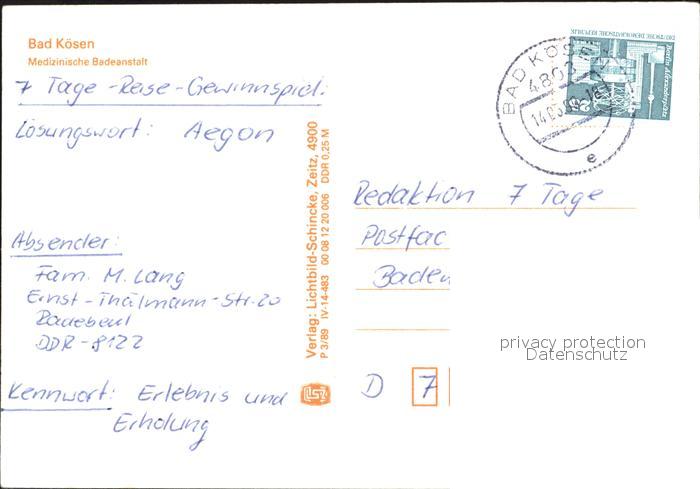 Bad Kösen
Medizinische Badeanstalt
7 Tage-Reise-Gewinnspiel:
Lösungswort: Aegon
Absender:
Fam. M. Lang
Ernst-Thälmann-Str. 20
Radebeul
DDR-8122
Kennwort: Erlebnis und
Erholung
Verlag: Lichtbild-Schincke, Zeitz, 4900
P 3/89 IV-14-483 00 08 12 20 006 DDR 0,25 M
BAD KÖSEN
4803
e
DEUTSCHE DEMOKRATISCHE REPUBLIK
Berlin, Alexanderplatz
25
Redaktion 7 Tage
Postfac
Baden
D 7
privacy protection
Datenschutz